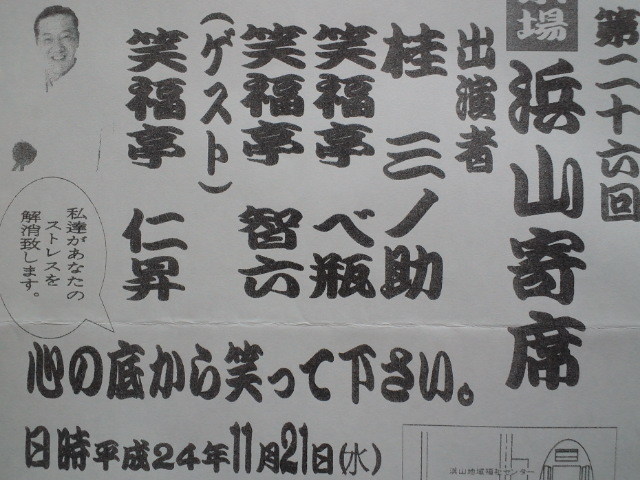 第二十六回
場
浜山寄席
出演者
桂 三ノ助
笑福亭 べ瓶
笑福亭 智六
(ゲスト)
笑福亭 仁昇
私達があなたの
ストレスを
解消致します。
心の底から笑って下さい。
日時平成24年11月21日(水)
浜山地域福祉センター